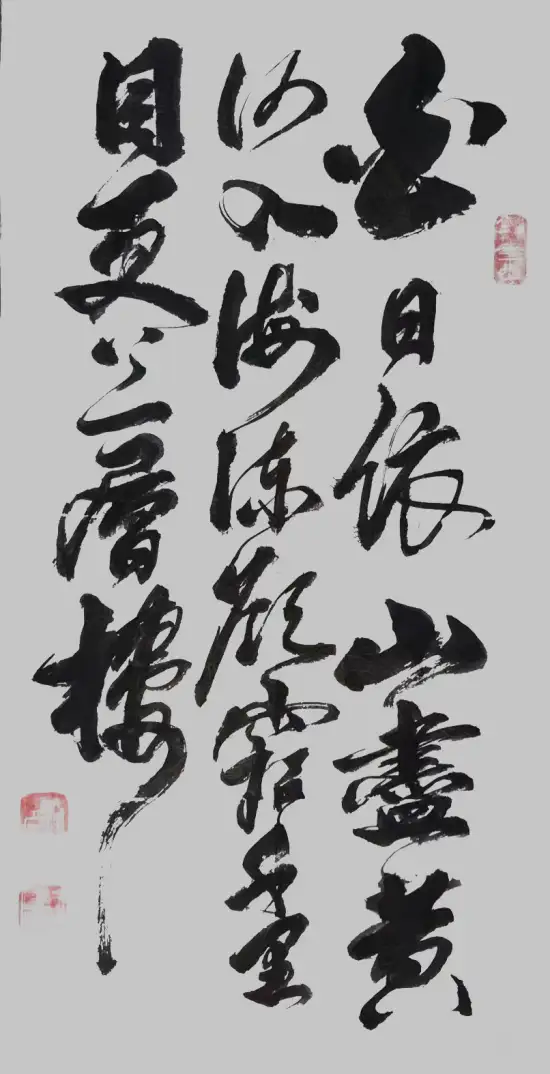 白日依山盡黄
河入海流欲窮千里
目更上一層樓